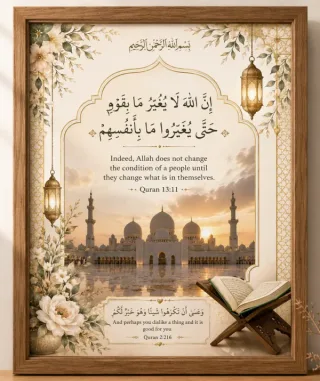 بِسْمِ اللهِ الرَّحْمٰنِ الرَّحِيْمِ
إِنَّ اللهَ لَا يُغَيِّرُ مَا بِقَوْمٍ
حَتَّى يُغَيِّرُوا مَا بِأَنْفُسِهِمْ
Indeed, Allah does not change
the condition of a people until
they change what is in themselves.
- Quran 13:11 -
وَعَسَى أَنْ تَكْرَهُوا شَيْئًا وَهُوَ خَيْرٌ لَكُمْ
And perhaps you dislike a thing and it is
good for you.
Quran 2:216